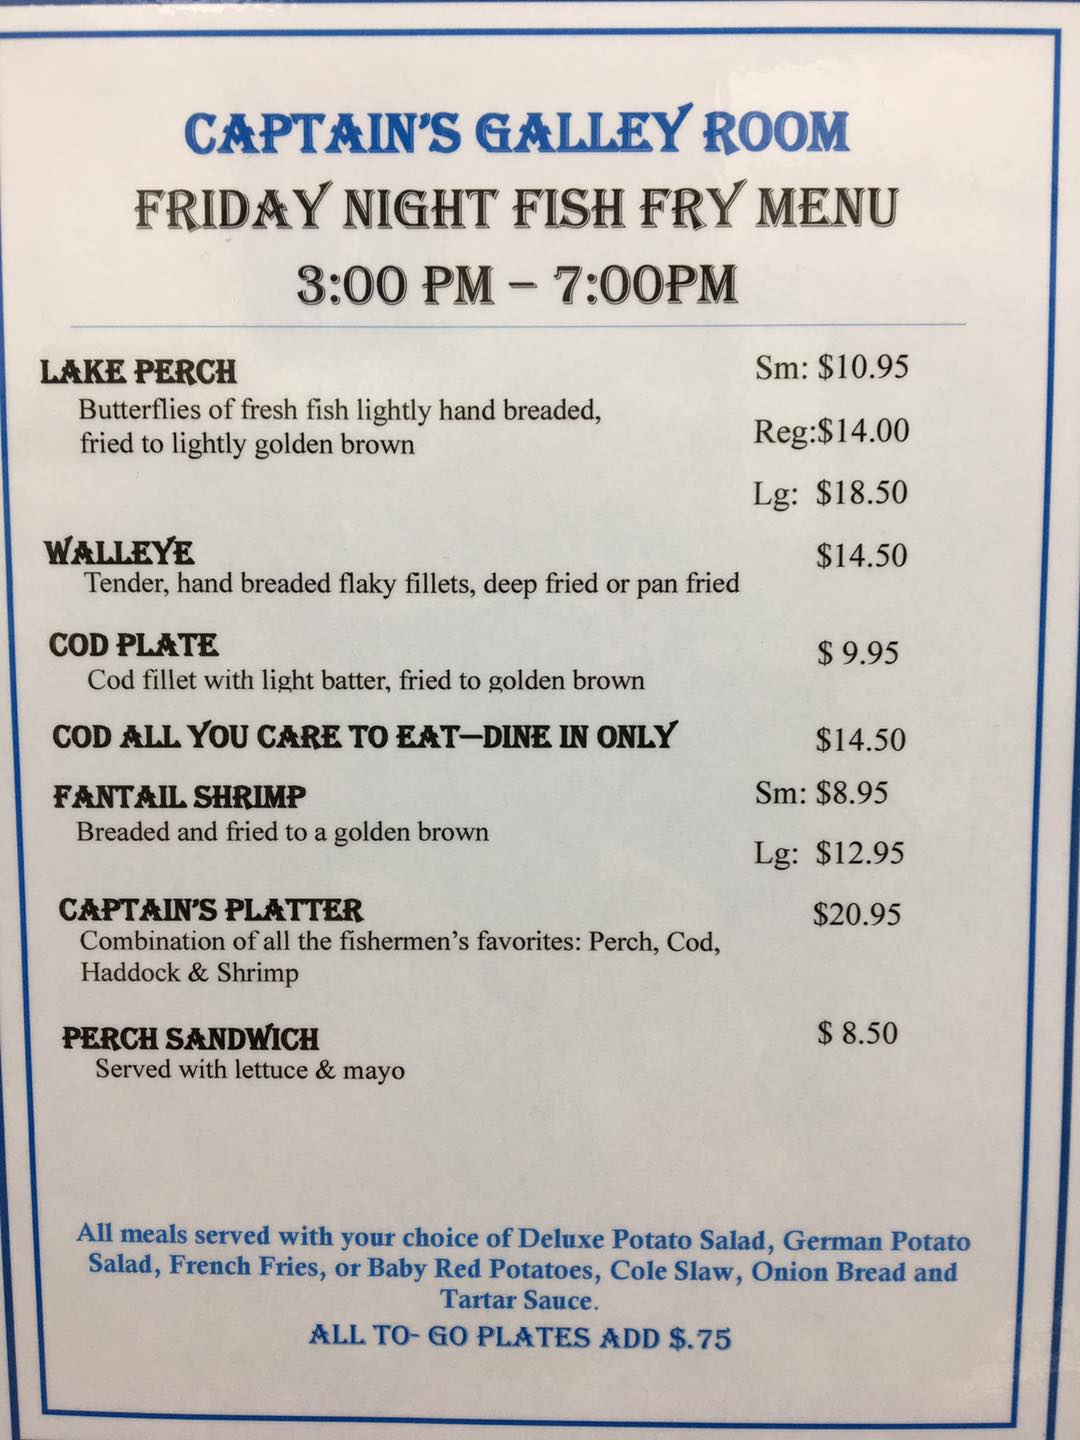 CAPTAIN'S GALLEY ROOM
FRIDAY NIGHT FISH FRY MENU
3:00 PM – 7:00PM
LAKE PERCH Sm: $10.95
Butterflies of fresh fish lightly hand breaded,
fried to lightly golden brown
Reg:$14.00
Lg: $18.50
WALLEYE $14.50
Tender, hand breaded flaky fillets, deep fried or pan fried
COD PLATE $ 9.95
Cod fillet with light batter, fried to golden brown
COD ALL YOU CARE TO EAT—DINE IN ONLY $14.50
FANTAIL SHRIMP Sm: $8.95
Breaded and fried to a golden brown
Lg: $12.95
CAPTAIN'S PLATTER $20.95
Combination of all the fishermen's favorites: Perch, Cod,
Haddock & Shrimp
PERCH SANDWICH $ 8.50
Served with lettuce & mayo
All meals served with your choice of Deluxe Potato Salad, German Potato
Salad, French Fries, or Baby Red Potatoes, Cole Slaw, Onion Bread and
Tartar Sauce.
ALL TO- GO PLATES ADD $.75